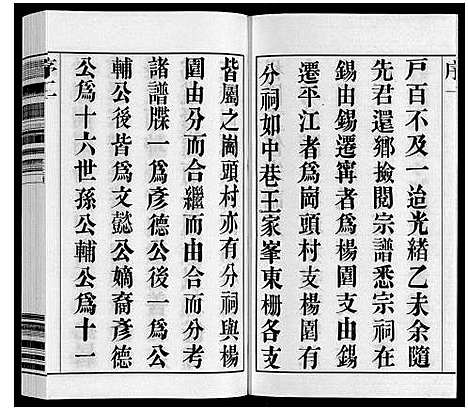 序一
戸百不及一迨光緒乙未余隨
先君還鄉撿閱宗譜悉宗祠在
錫由錫遷𡩋者爲楊圍支由錫
遷平江者爲崗頭村支楊圍有
分祠如中巷王家峯東柵各支
皆屬之崗頭村亦有分祠與楊
圍由分而合繼而由合而分考
諸譜牒一爲彥德公後一爲公
輔公後皆爲文懿公嫡裔彥德
公爲十六世孫公輔公爲十一
序二